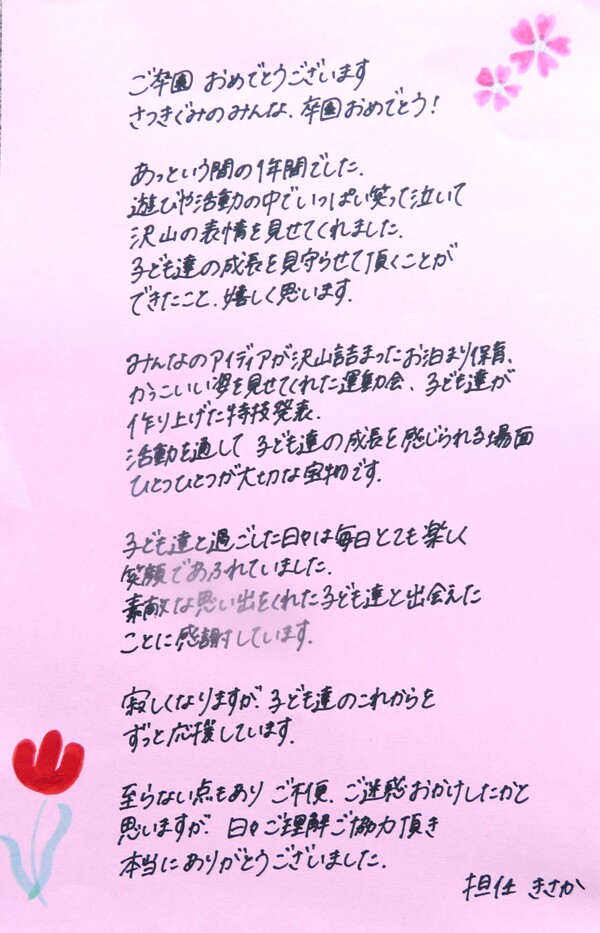 ご卒園 おめでとうございます
さつきぐみのみんな、卒園おめでとう!
あっという間の1年間でした。
遊びや活動の中でいっぱい笑って泣いて
沢山の表情を見せてくれました。
子ども達の成長を見守らせて頂くことが
できたこと、嬉しく思います。
みんなのアイディアが沢山詰まったお泊まり保育、
かっこいい姿を見せてくれた運動会、子ども達が
作り上げた特技発表。
活動を通して 子ども達の成長を感じられる場面
ひとつひとつが大切な宝物です。
子ども達と過ごした日々は毎日とても楽しく
笑顔であふれていました。
素敵な思い出をくれた子ども達と出会えた
ことに感謝しています。
寂しくなりますが、子ども達のこれからを
ずっと応援しています。
至らない点もあり ご不便、ご迷惑おかけしたかと
思いますが、日々ご理解ご協力頂き
本当にありがとうございました。
担任 きさか